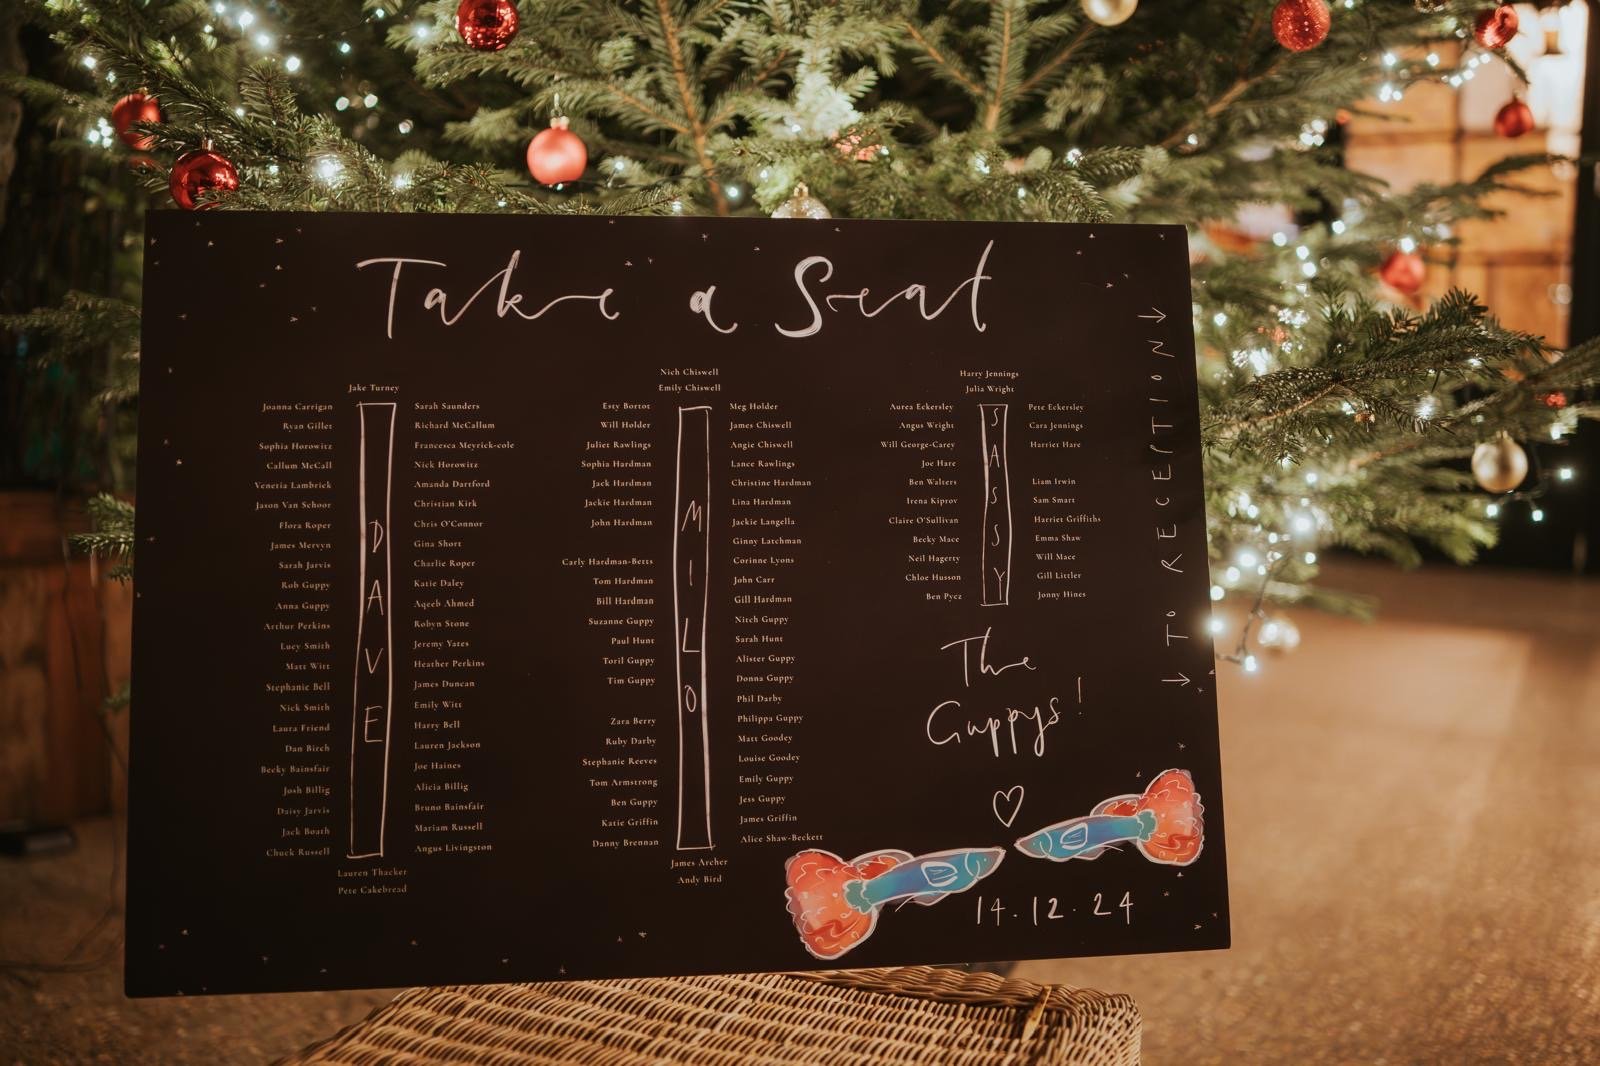 Take a Seat
Jake Turney
Joanna Carrigan
Ryan Gillet
Sophia Horowitz
Callum McCall
Venetia Lambrick
Jason Van Schoor
Flora Roper
James Mervyn
Sarah Jarvis
Rob Guppy
Anna Guppy
Arthur Perkins
Lucy Smith
Matt Witt
Stephanie Bell
Nick Smith
Laura Friend
Dan Birch
Becky Bainsfair
Josh Billig
Daisy Jarvis
Jack Boath
Chuck Russell
DAVE
Sarah Saunders
Richard McCallum
Francesca Meyrick-cole
Nick Horowitz
Amanda Dartford
Christian Kirk
Chris O'Connor
Gina Short
Charlie Roper
Katie Daley
Aqeeb Ahmed
Robyn Stone
Jeremy Yates
Heather Perkins
James Duncan
Emily Witt
Harry Bell
Lauren Jackson
Joe Haines
Alicia Billig
Bruno Bainsfair
Mariam Russell
Angus Livingston
Lauren Thacker
Pete Cakebread
Nich Chiswell
Emily Chiswell
Esty Bortot
Will Holder
Juliet Rawlings
Sophia Hardman
Jack Hardman
Jackie Hardman
John Hardman
Carly Hardman-Betts
Tom Hardman
Bill Hardman
Suzanne Guppy
Paul Hunt
Toril Guppy
Tim Guppy
Zara Berry
Ruby Darby
Stephanie Reeves
Tom Armstrong
Ben Guppy
Katie Griffin
Danny Brennan
MILO
Meg Holder
James Chiswell
Angie Chiswell
Lance Rawlings
Christine Hardman
Lina Hardman
Jackie Langella
Ginny Latchman
Corinne Lyons
John Carr
Gill Hardman
Nitch Guppy
Sarah Hunt
Alister Guppy
Donna Guppy
Phil Darby
Philippa Guppy
Matt Goodey
Louise Goodey
Emily Guppy
Jess Guppy
James Griffin
Alice Shaw-Beckett
James Archer
Andy Bird
Harry Jennings
Julia Wright
Aurea Eckersley
Angus Wright
Will George-Carey
Joe Hare
Ben Walters
Irena Kiprov
Claire O'Sullivan
Becky Mace
Neil Hagerty
Chloe Husson
Ben Pycz
SASSY
Pete Eckersley
Cara Jennings
Harriet Hare
Liam Irwin
Sam Smart
Harriet Griffiths
Emma Shaw
Will Mace
Gill Littler
Jonny Hines
The
Guppys!
14.12.24
← TO RECEPTION ←